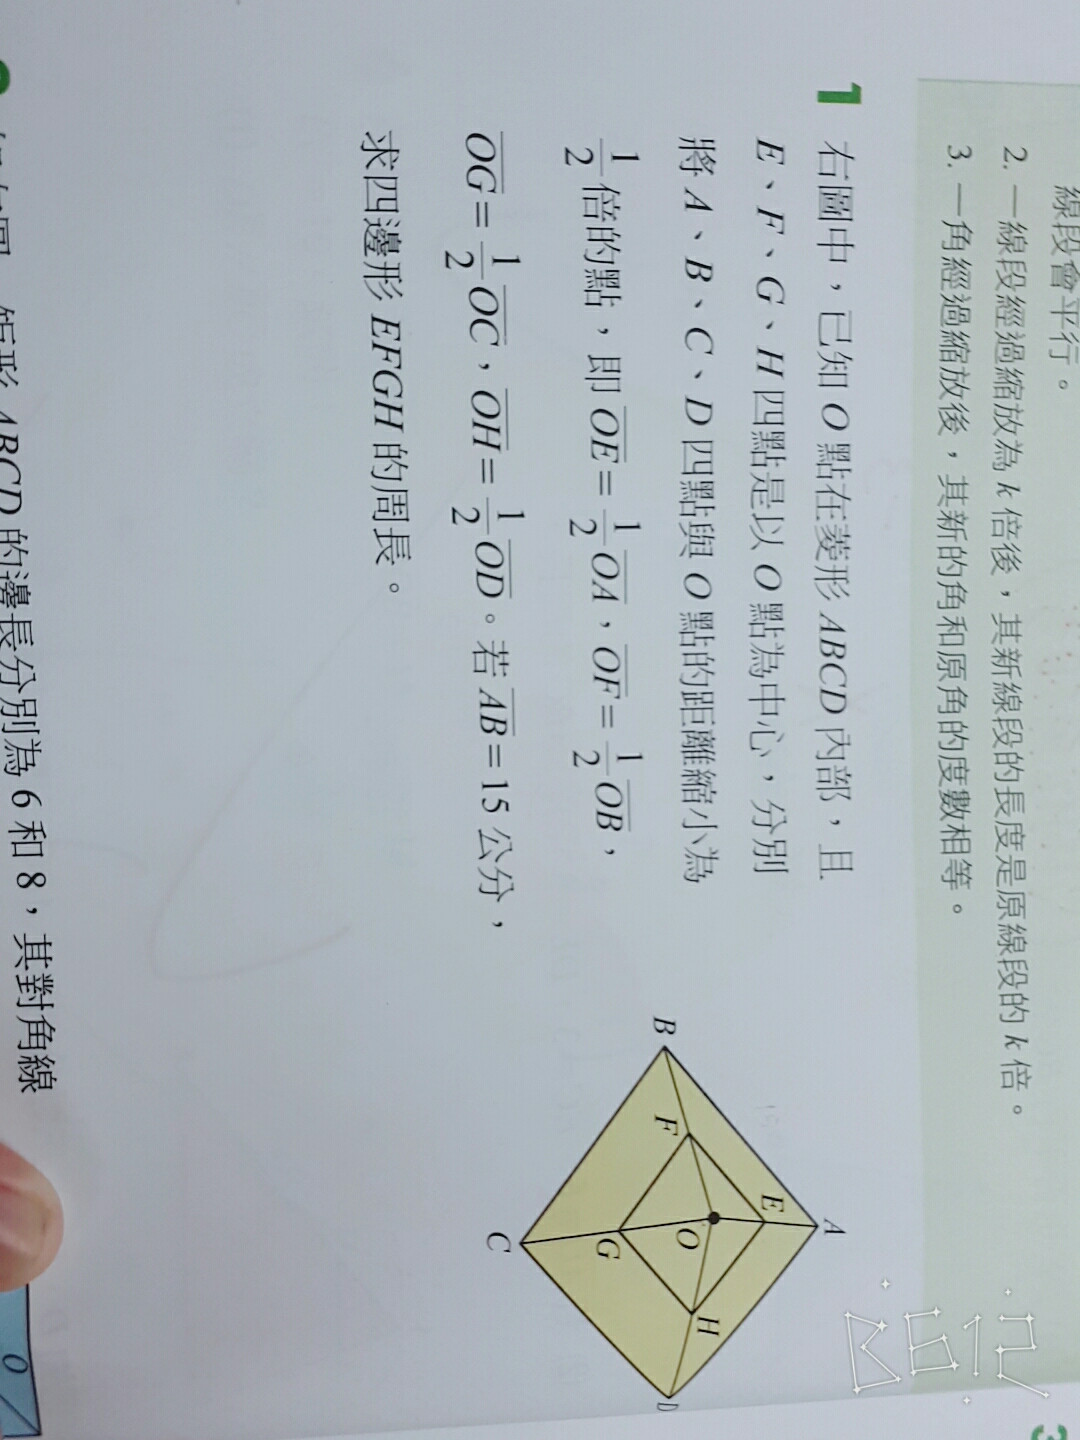 線段會平行。
2. 一線段經過縮放為 k 倍後，其新線段的長度是原線段的 k 倍。
3. 一角經過縮放後，其新的角和原角的度數相等。
1 右圖中，已知 O 點在菱形 ABCD 內部，且
E、F、G、H 四點是以 O 點為中心，分別
將 A、B、C、D 四點與 O 點的距離縮小為
1/2 倍的點，即 OE = 1/2 OA，OF = 1/2 OB，
OG = 1/2 OC，OH = 1/2 OD。若 AB = 15 公分，
求四邊形 EFGH 的周長。
A
E
B
F
O
H
D
G
C
矩形 ABCD 的邊長分別為 6 和 8，其對角線
O
B612
3